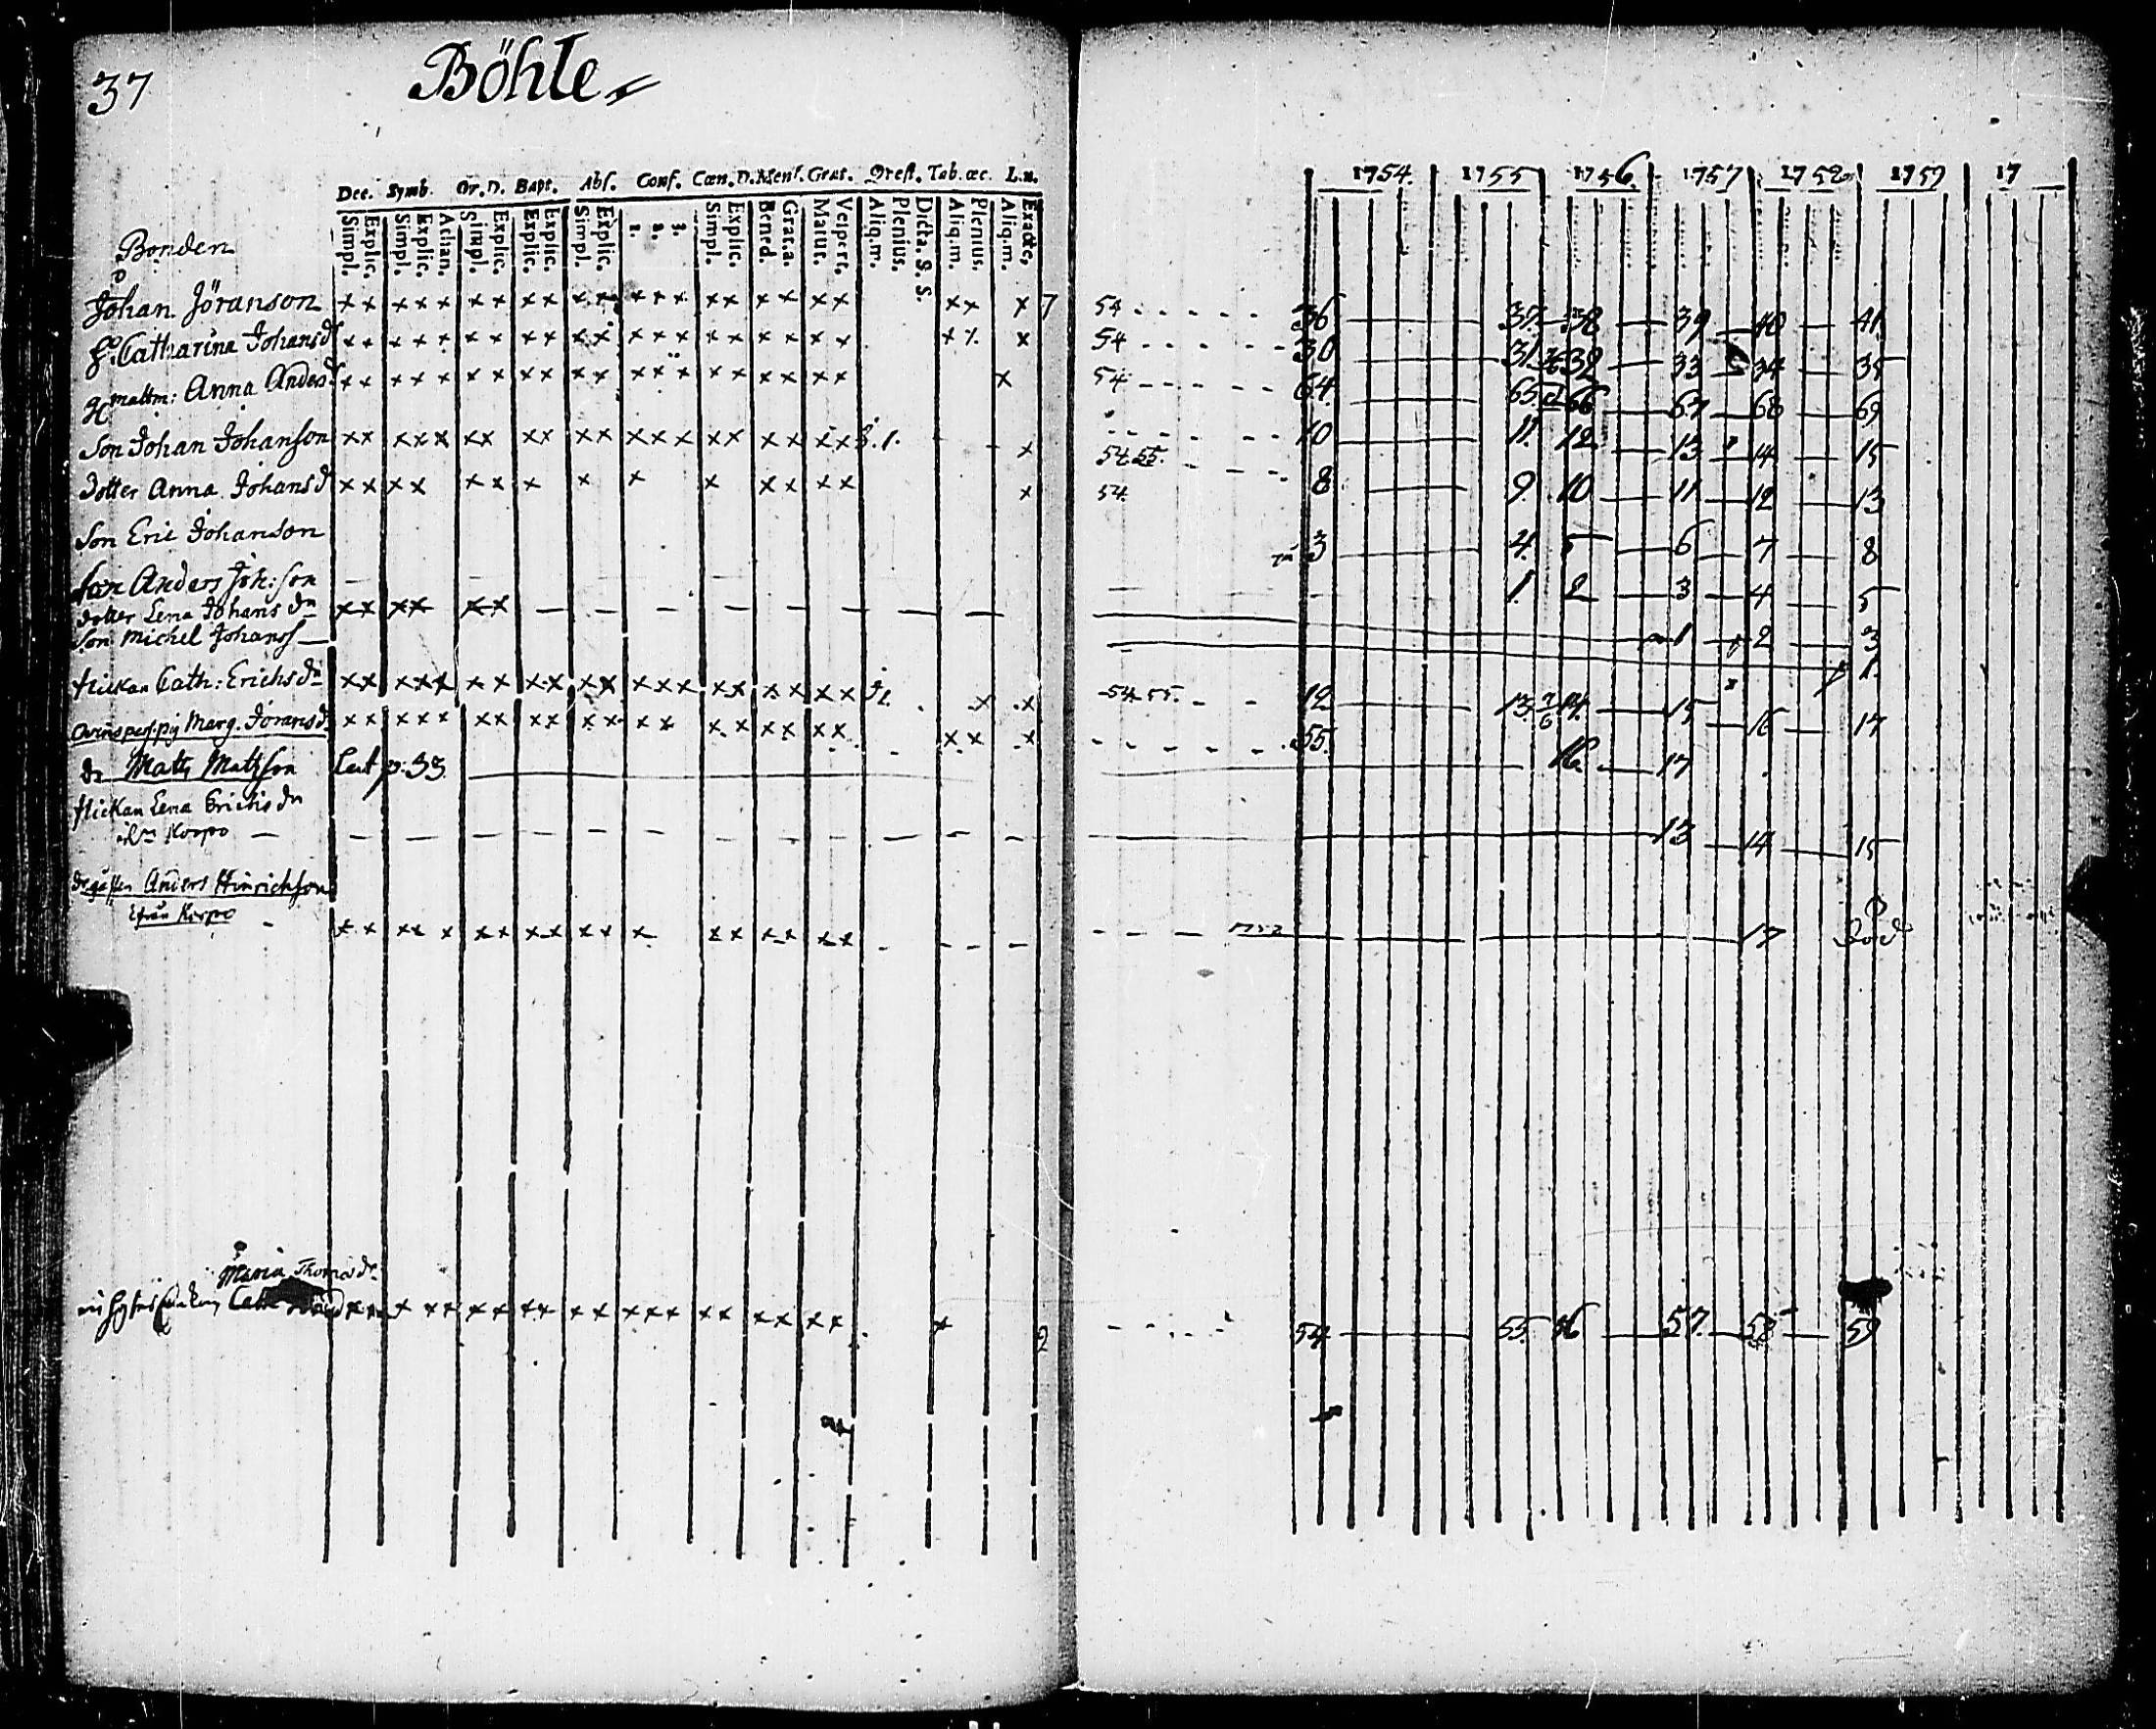 37 Böhle
Dec. Symb. Or. D. Bapt. Abs. Conf. Cœn. D. Mens. Grat. Qvest. Tab. œc. L. n.
Simpl. Explic. Simpl. Explic. Athan. Simpl. Explic. Explic. Explic. Simpl. Explic. 1. 2. 3. Simpl. Explic. Bened. Grat.a. Matut. Vespert. Aliq.m. Plenius. Dicta. S. S. Aliq.m. Plenius. Aliq.m. Exacte,
1754. 1755 1756. 1757 1758 1759 17
Bonden
Johan Jöranson x x x x x x x x x x x x x x x x x x x x x x 7 54 36 37. 38 39 40 41.
h. Catharina Johansdr x x x x x x x x x x x x x x x x x x x x x x 54 30 31 32 33 34 35
mattm: Anna Andersdr x x x x x x x x x x x x x x x x x x x x x 54 64. 65 66 67 68 69
Son Johan Johanson x x x x x x x x x x x x x x x x x x x x x 54 55. 10 11. 12 13 14 15
Dotter Anna Johansd x x x x x x x x x x x x x x x 54 8 9 10 11 12 13
Son Eric Johanson 3 4 5 6 7 8
Son Anders Joh:son 1. 2 3 4 5
dotter Lena Johans dn x x x x x x 1 2 3
Son Michel Johans 1.
flickan Cath: Erichs dn x x x x x x x x x x x x x x x x x x x x x x 54 55. 12 13 14. 15 16 17
Marg. Joransd x x x x x x x x x x x x x x x x x x x x x x 55.
Mats Matsson p. 33 16. 17
flickan Lena Erichs dn
Korpo 13 14 15
Anders Hinrichson
ifrån Korpo x x x x x x x x x x x x x x x x x x 17 död
Maria Thomasdr
x x x x x x x x x x x x x x x x x x x x x 2 54 55. 56 57. 58 59